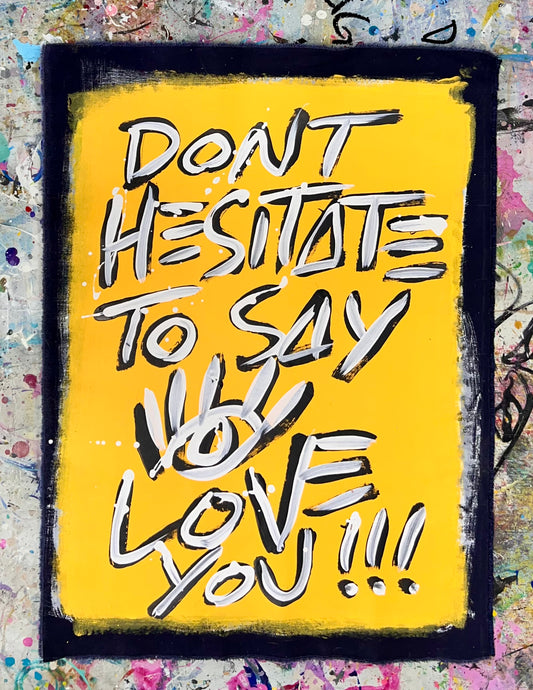 DONT
HESITATE
TO SAY
LOVE
YOU!!!